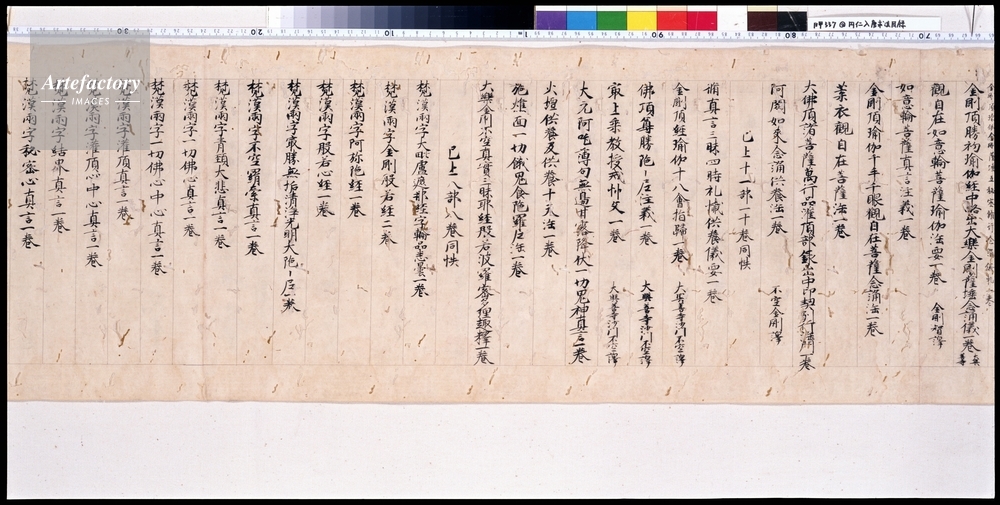 金剛頂勝初瑜伽經中略出大樂金剛薩埵念誦儀一卷
觀自在如意輪菩薩瑜伽法要一卷 金剛智譯
如意輪菩薩真言注義一卷
金剛頂瑜伽千手千眼觀自在菩薩念誦法一卷
葉衣觀自在菩薩法一卷
大佛頂諸菩薩萬行品灌頂部錄出中印契別行法門一卷
阿閦如來念誦供養法一卷 不空金剛譯
已上十一部一十卷同帙
滿真言三昧四時礼懺供養儀要一卷
金剛頂經瑜伽十八會指歸一卷 大興善寺沙門不空譯
佛頂尊勝陁羅尼注義一卷 大興善寺沙門不空譯
最上乘教授戒懺悔文一卷 大興善寺沙門不空譯
大元阿吒薄句無邊甘露降伏一切鬼神真言一卷
火壇供養及供養十天法一卷
施燋面一切餓鬼食陁羅尼法一卷
大樂金剛不空真實三昧耶經般若波羅蜜多理趣釋一卷
已上八部八卷同帙
梵漢兩字大毗盧遮那經字輪品悉曇一卷
梵漢兩字金剛般若經二卷
梵漢兩字阿弥陁經一卷
梵漢兩字般若心經一卷
梵漢兩字最勝無垢清淨光明大陁羅尼一卷
梵漢兩字不空羂索真言一卷
梵漢兩字青頸大悲真言一卷
梵漢兩字一切佛心真言一卷
梵漢兩字一切佛心中心真言一卷
梵漢兩字灌頂真言一卷
梵漢兩字灌頂心中心真言一卷
梵漢兩字結界真言一卷
梵漢兩字秘密心真言一卷
Artefactory
IMAGES